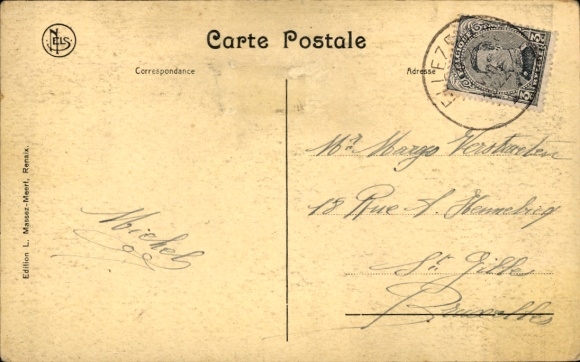 NELS
Carte Postale
Correspondance
Adresse
ELLEZ
Edition L. Massez-Meert, Renaix.
Michel
Mr Margo Verstraeten
18 Rue A. Hennebicq
St Gilles
Bruxelles